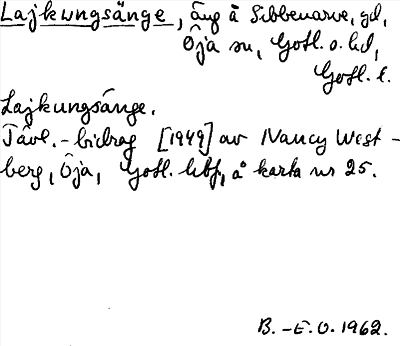 Lajkungsänge, äng å Sibbenarve, gd,
Öja sn, Gotl. s. hd,
Gotl. l.
Lajkungsänge.
Tävl.-bidrag [1949] av Nancy West-
berg, Öja, Gotl. hbf, å karta nr 25.
B.-E.O. 1962.